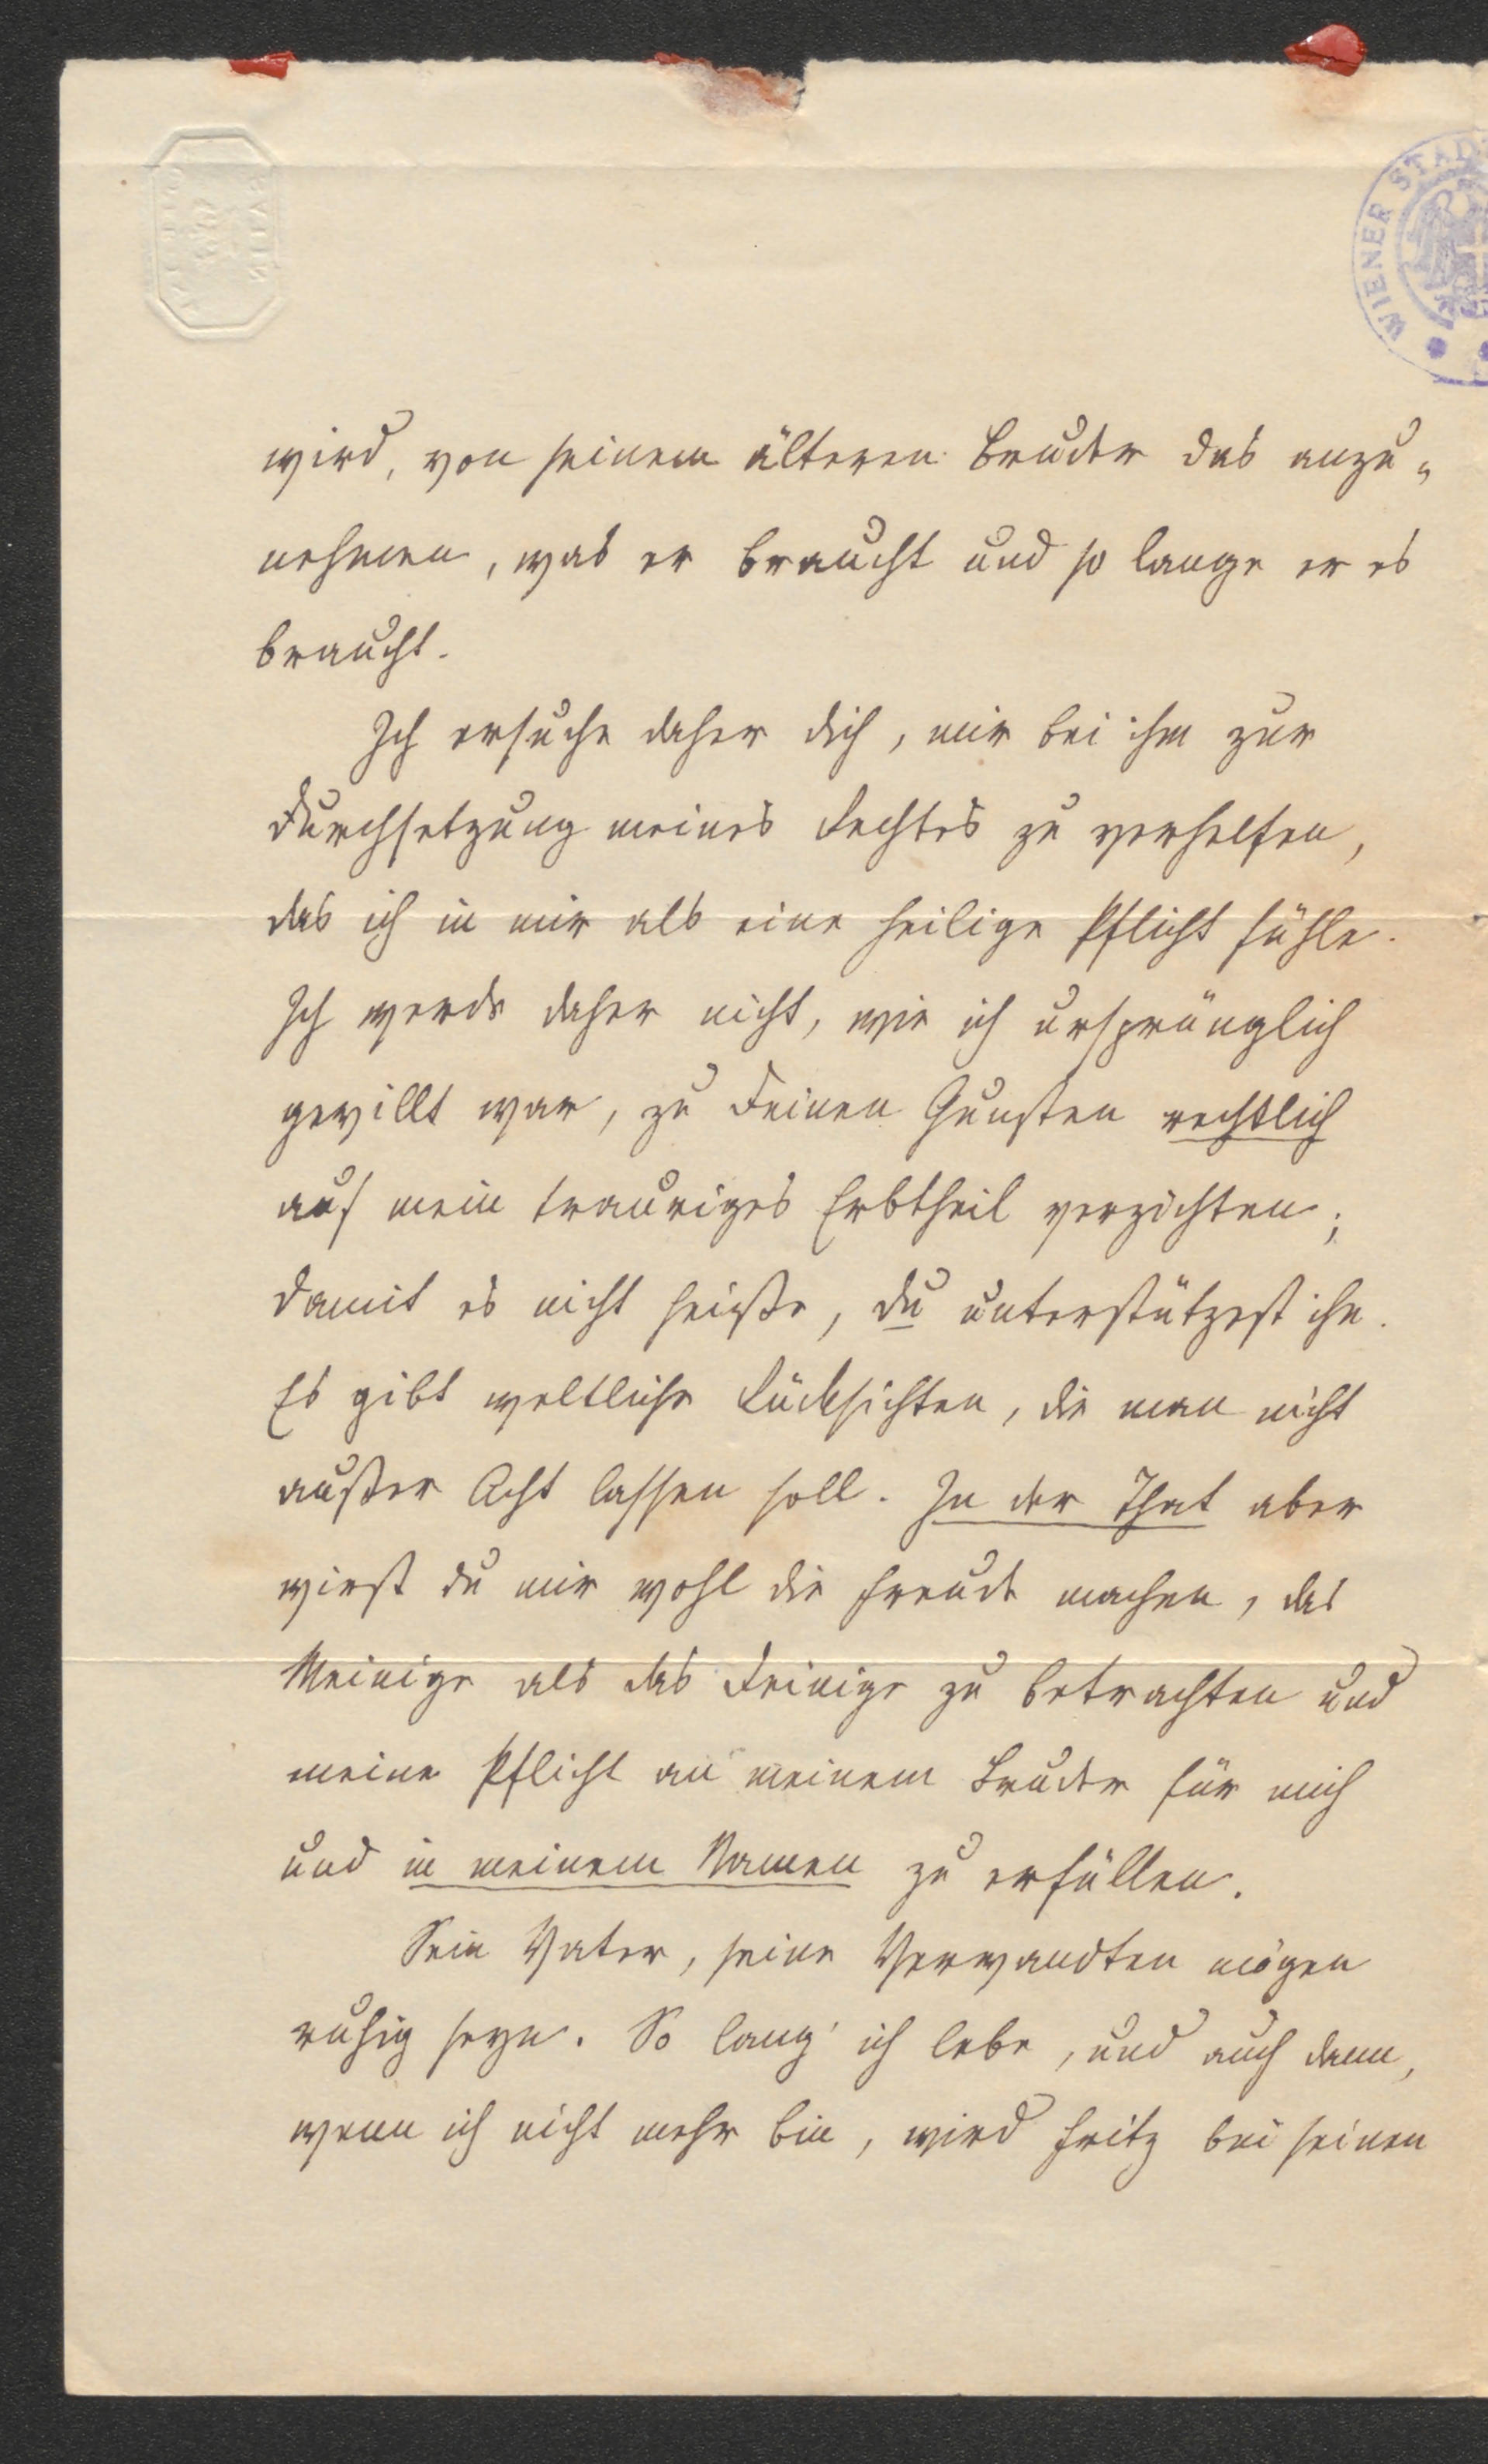 WIENER STAD
wird, von seinem älteren Bruder das anzu„
nehmen, was er braucht und so lange er es
braucht.
Ich ersuche daher dich, mir bei ihm zur
Durchsetzung meines Rechtes zu verhelfen,
das ich in mir als eine heilige Pflicht fühle.
Ich werde daher nicht, wie ich ursprünglich
gewillt war, zu Deinen Gunsten rechtlich
auf mein trauriges Erbtheil verzichten;
damit es nicht heiße, du unterstützest ihn.
Es gibt weltliche Rücksichten, die man nicht
außer Acht lassen soll. In der That aber
wirst du mir wohl die Freude machen, das
Meinige als das Deinige zu betrachten und
meine Pflicht an meinem Bruder für mich
und in meinem Namen zu erfüllen.
Sein Vater, seine Verwandten mögen
ruhig seyn. So lang' ich lebe, und auch dann,
wenn ich nicht mehr bin, wird Fritz bei seinen